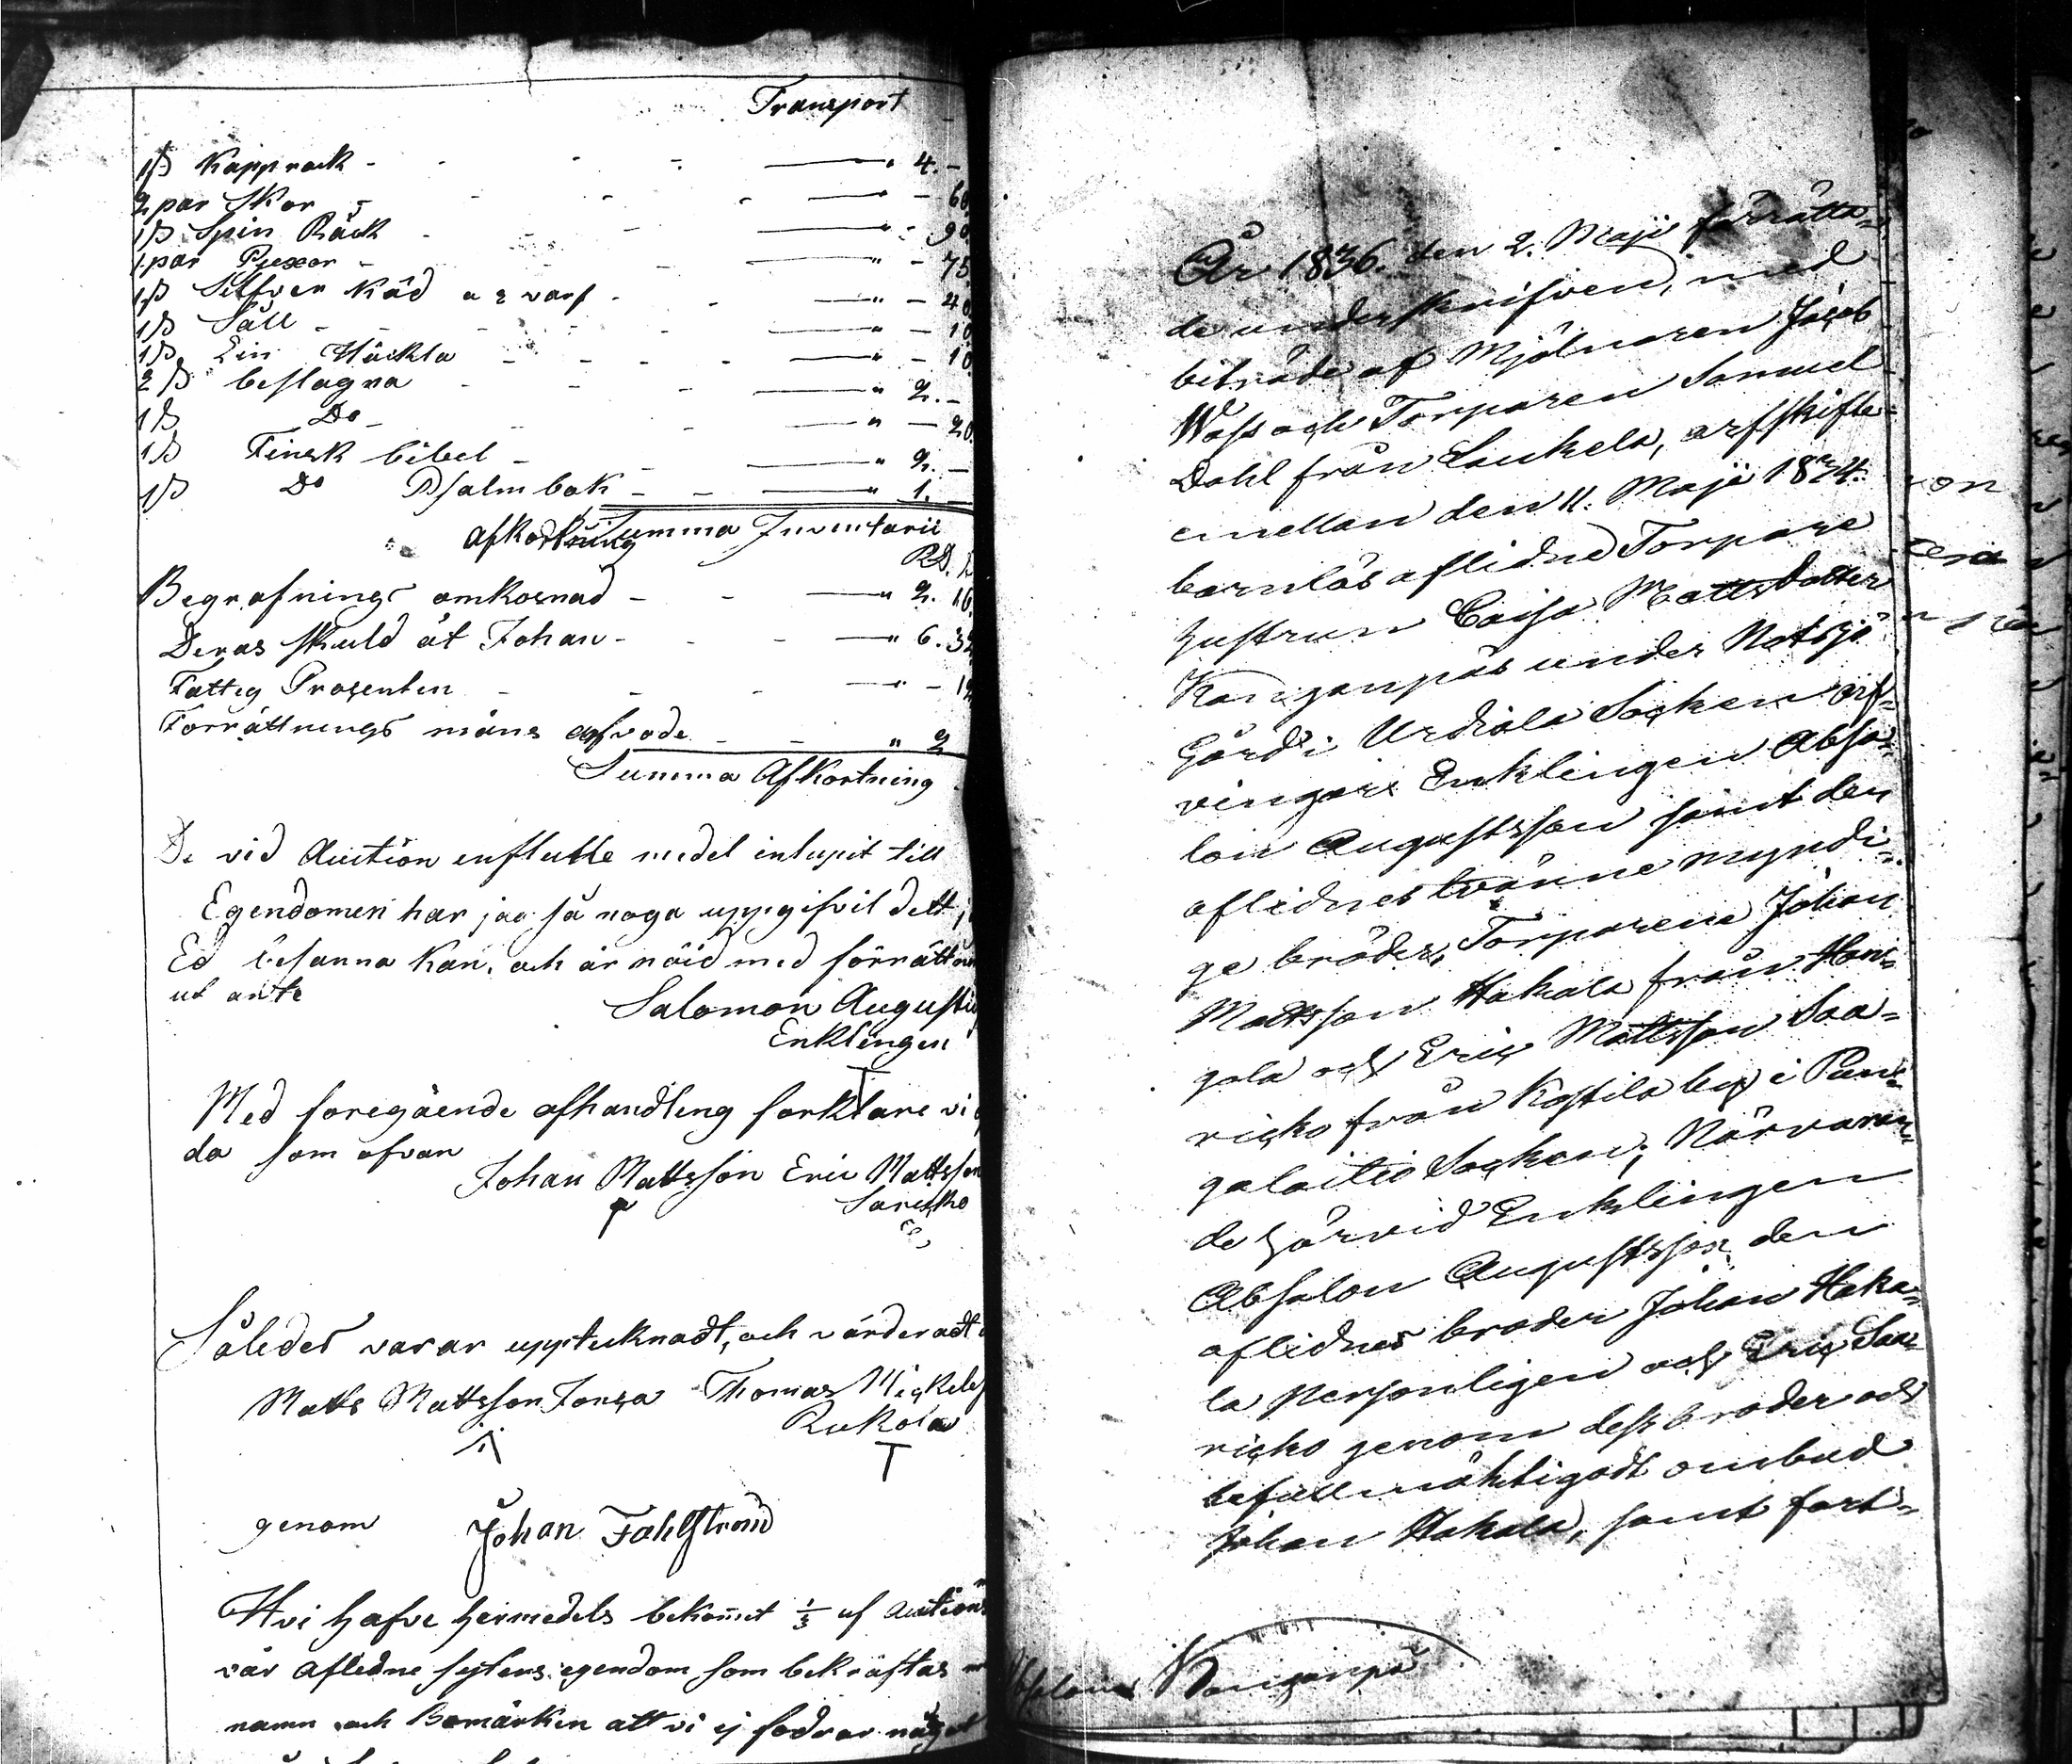 Transport
1 st Kapprock - - - - — " 4. -
2 par Skor - - - - — " - 60
1 st Spin Råck - - - — " - 90
1 par Pjexor - - - — " - 75
1 st Silfver Käd a 2 varf - - — " - 40
1 st Såll - - - - — " - 10
1 st Lin Häckla - - - - — " - 10
2 st beslagna - - - - — " 2. -
1 st Do - - - - — " - 20
1 st Finsk bibel - - — " 2. -
1 st Do Psalm bok - - — " 1. -
Summa Inventarii
afkortning
RD.
Begrafnings omkosnad - - — " 2. 16
Deras skuld åt Johan - - — " 6. 32
Fattig Prosenten - - - — " - 12
Forrättnings mäns arfvode - - " 2
Summa Afkortning
De vid Auction influtte medel inlupit till
Egendomen har jag så noga uppgifvit dett
Ed besanna kan, och är nöid med förrättn
ut ante
Salomon August
Enklingen
Med foregående afhandling forklare vi
da som ofvan
Johan Mattsson Eric Mattsson
Saricko
Således varar upptecknadt, och värderadt
Matts Mattsson Jonsa Thomas Mickels
Rukola
genom Johan Fahlstrand
Att vi hafve hermedels bekomit 1/3 uf Auctions
vår aflidne systers egendom som bekräftas
namn och Bomärken att vi ej fodrar något
År 1836. den 2. Maji förrätta=
de underskrifven, med
biträde af Mjölnaren Jacob
Wass och Torparen Samuel
Dahl från Laukela, arfskifte
emellan den 11. Maji 1834.
barnlös aflidne Torpare
hustrun Caisa Mattsdotter
Kanganpäs under Notsjö
Gård i Urdiala Socken arf=
vingar Enklingen Absa=
lon Augustsson samt den
aflidnes tvänne myndi=
ge bröder, Torparene Johan
Mattsson Hakala från Hon=
gola och Eric Mattsson Saa=
ricko från Kostila by i Pun=
galaitio Socken; Närvaran=
de härvid Enklingen
Absalon Augustsson, den
aflidnes broder Johan Haka=
la personligen och Eric Saa=
ricko genom dess broder och
befullmäktigadt ombud
Johan Hakala, samt fort=
Absalons Kanganpä